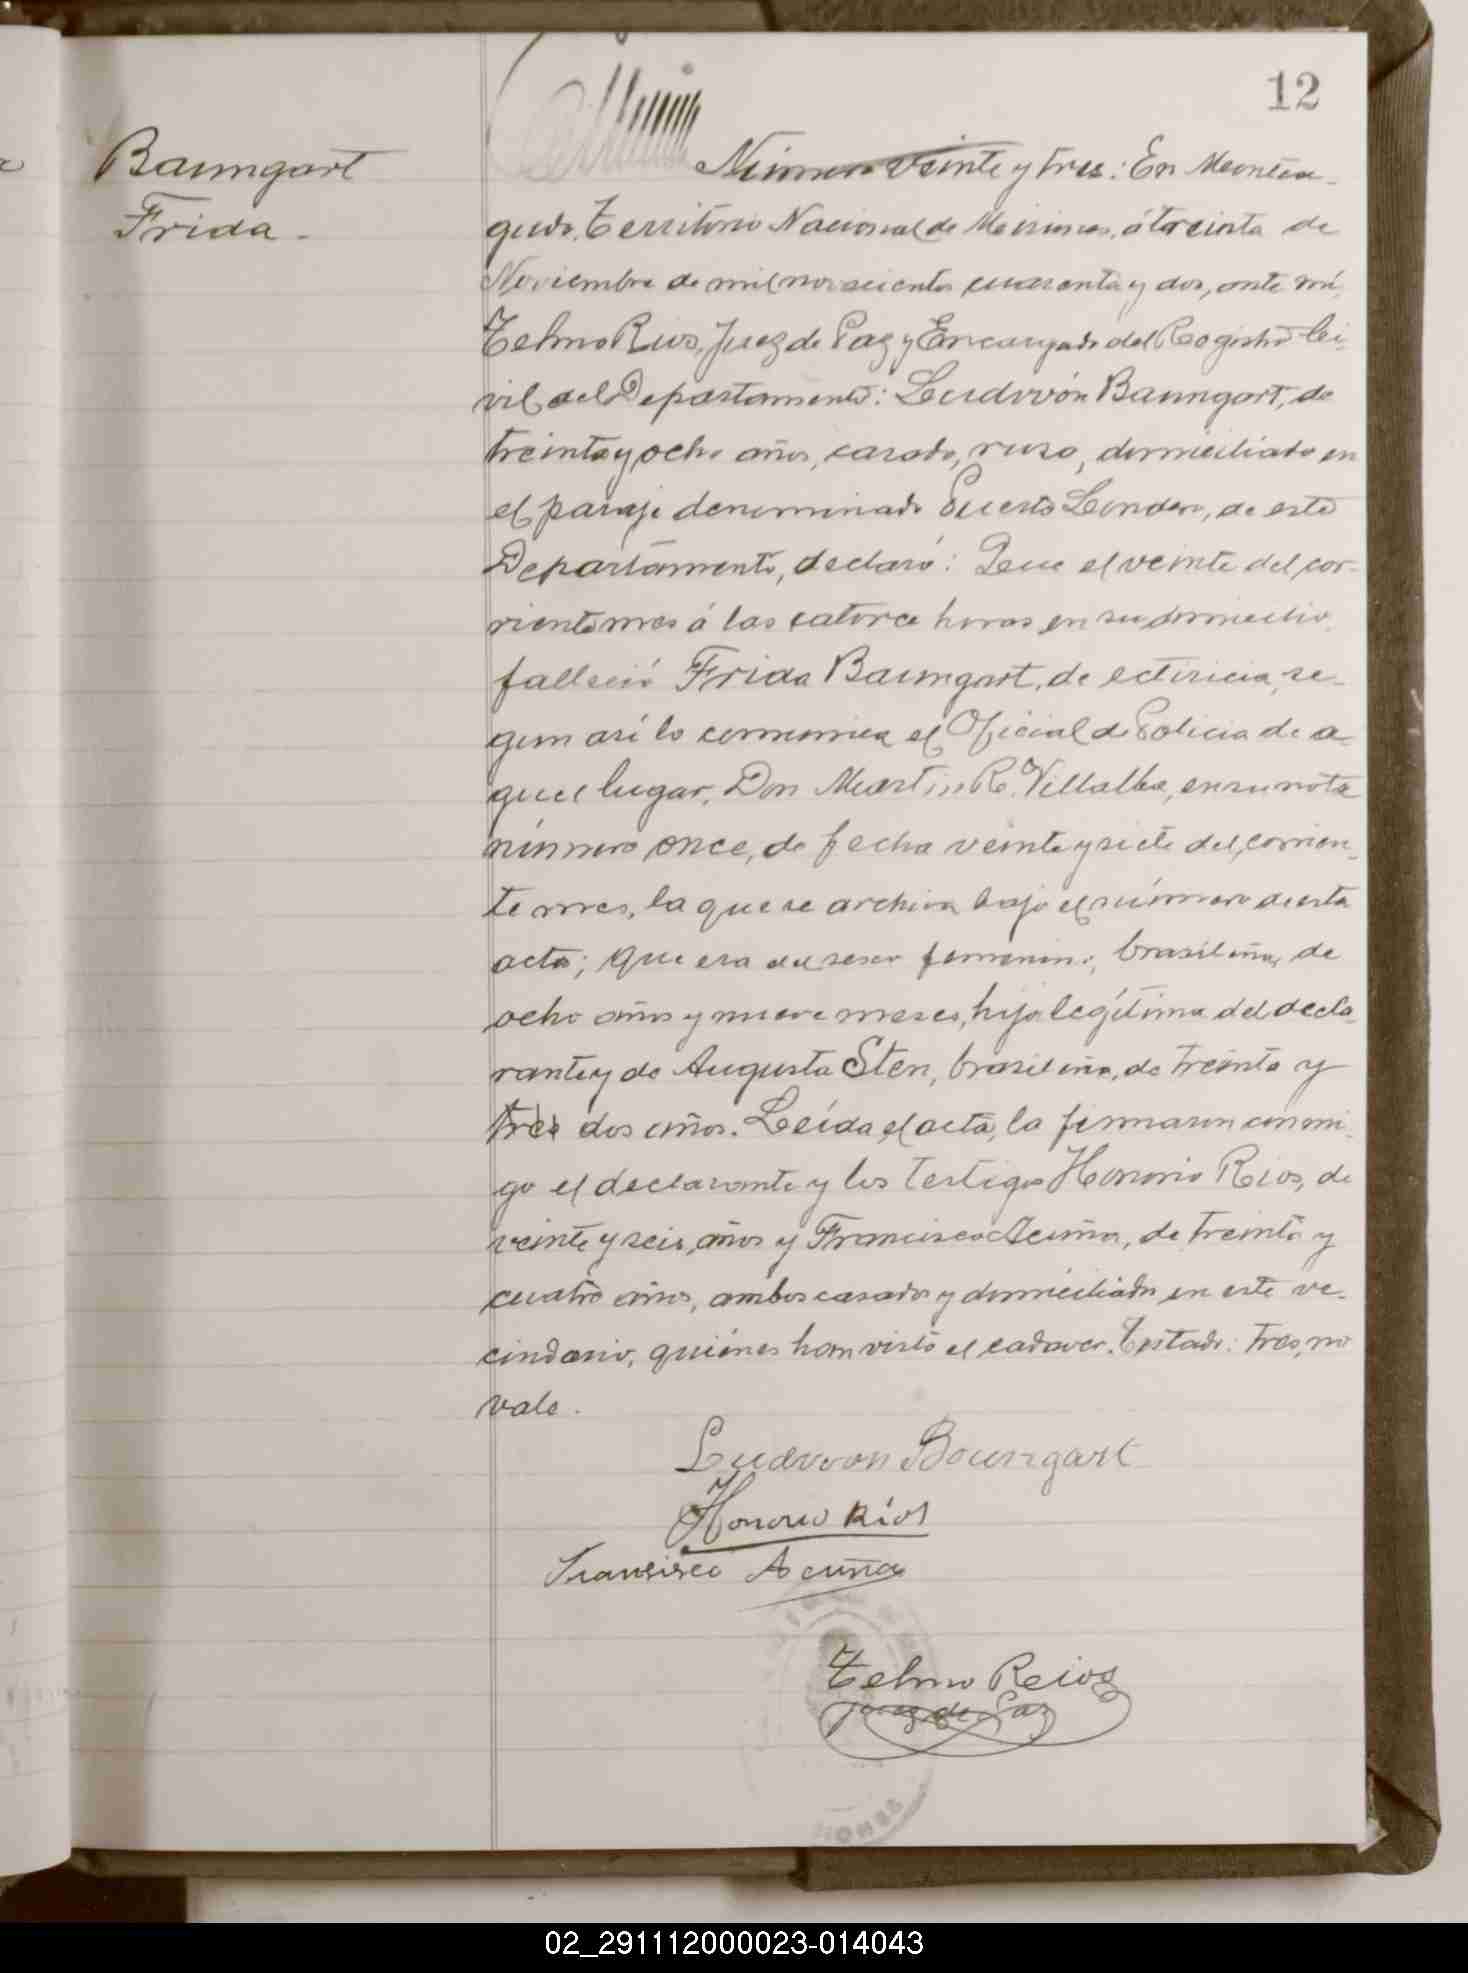 12
Baumgart
Frida.
Número veinte y tres: En Montea-
gudo, Territorio Nacional de Misiones, á treinta de
Noviembre de mil novecientos cuarenta y dos, ante mí,
Telmo Rios, Juez de Paz y Encargado del Registro Ci-
vil del Departamento: Ludovón Baumgart, de
treinta y ocho años, casado, ruso, domiciliado en
el paraje denominado Puerto Londero, de este
Departamento, declaró: Que el veinte del cor-
riente mes á las catorce horas en su domicilio
falleció Frida Baumgart, de ectiricia, se-
gun así lo comunica el Oficial de Policia de a-
quel lugar, Don Martin R. Villalba, en su nota
número once, de fecha veinte y siete del corrien-
te mes, la que se archiva bajo el número de esta
acta; que era del sexo femenino, brasileña, de
ocho años y nueve meses, hija legítima del decla-
rante y de Augusta Sten, brasileña, de treinta y
tres dos años. Leída el acta, la firmaron conmi-
go el declarante y los testigos Honorio Rios, de
veinte y seis años y Francisco Acuña, de treinta y
cuatro años, ambos casados y domiciliados en este ve-
cindario, quiénes han visto el cadaver. Testado: tres, no
vale.
Ludovon Baumgart
Honorio Ríos
Fransisco Acuña
Telmo Reios
Juez de Paz
02_291112000023-014043